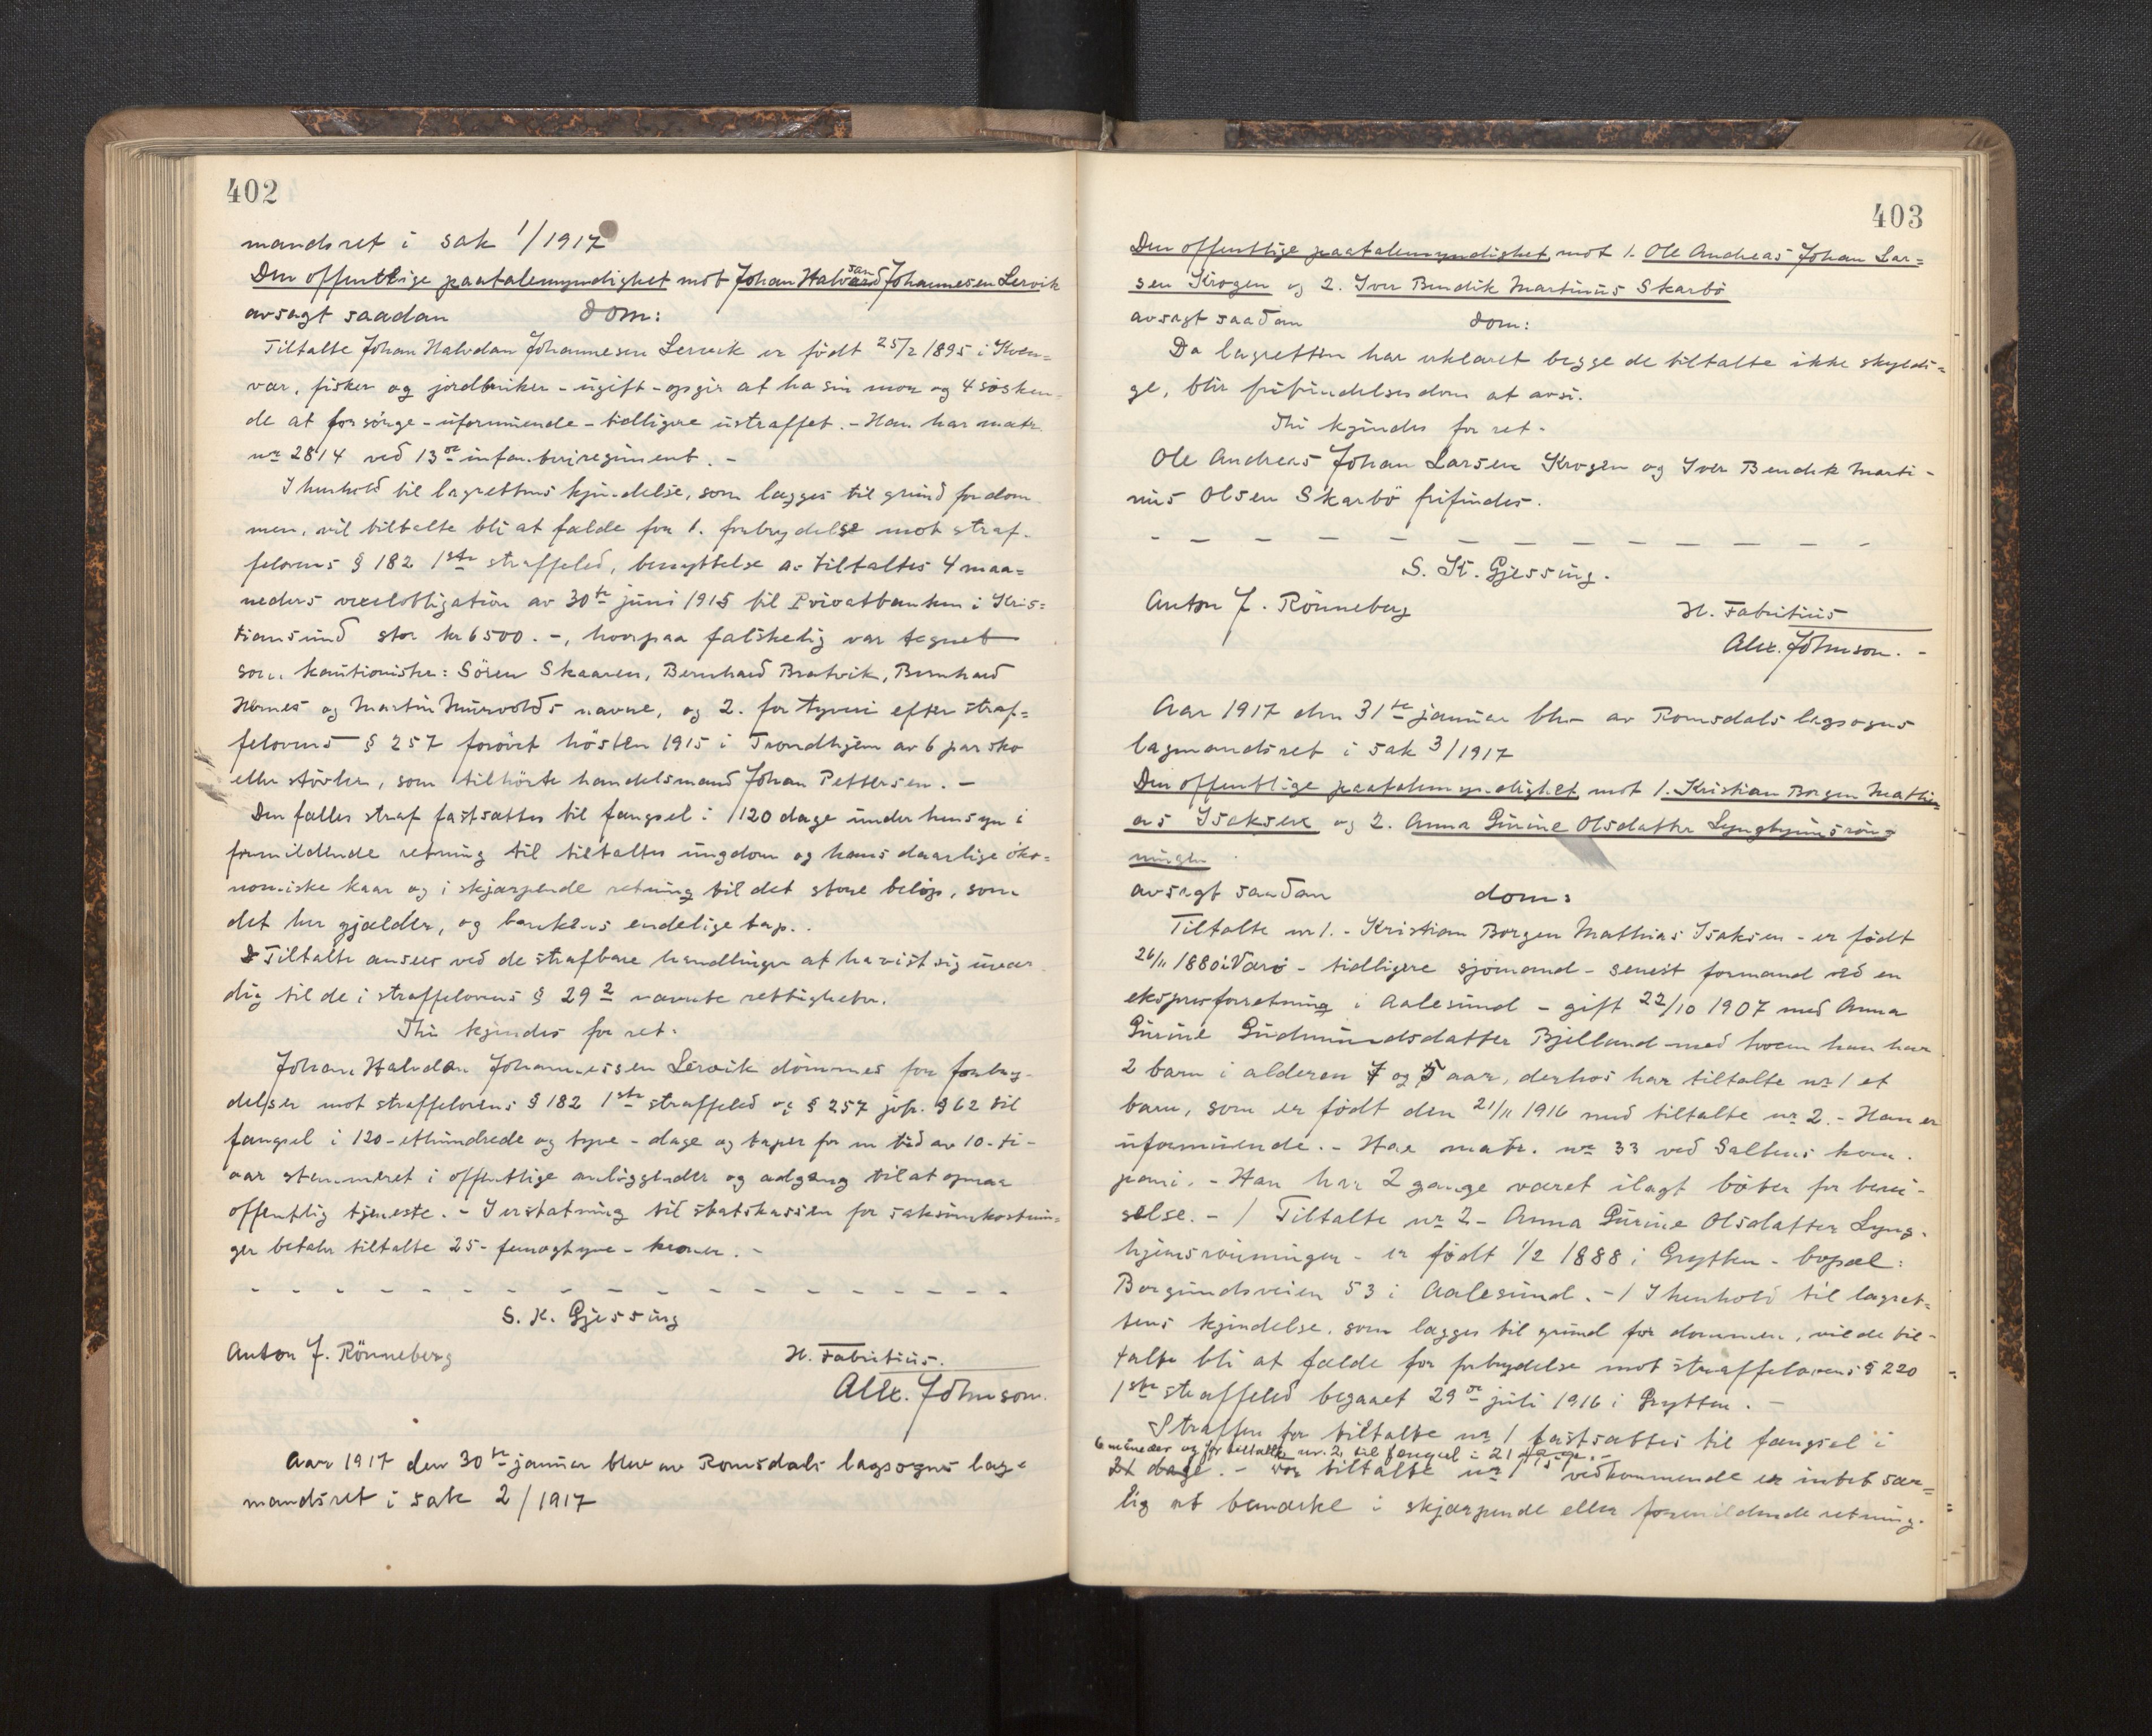 402
mandsret i sak 1/1917
Den offentlige paatalemyndighet mot Johan Halvdan Johannesen Lervik
avsagt saadan dom:
Tiltalte Johan Halvdan Johannesen Lervik er født 25/2 1895 i Kven=
vær, fisker og jordbruker - ugift - opgir at ha sin mor og 4 søsken-
de at forsørge - uformuende - tidligere ustraffet. - Han har matr.
nr 2814 ved 13de infanteriregiment. -
I henhold til lagrettens kjendelse, som lægges til grund for dom
men, vil tiltalte bli at fælde for 1. forbrydelse mot straf-
felovens § 182 1ste straffeled, benyttelse av tiltaltes 4 maa=
neders vexelobligation av 30te juni 1915 til Privatbanken i Kris=
tiansund stor kr 6500. -, hvorpaa falskelig var tegnet
som kautionister: Sören Skaaren, Bernhard Bratvik, Bernhard
Hemnes og Martin Murvolds navne, og 2. for tyveri efter straf=
felovens § 257 forøvet høsten 1915 i Trondhjem av 6 par sko
eller støvler, som tilhørte handelsmand Johan Pettersen. -
Den fælles straf fastsættes til fængsel i 120 dage under hensyn i
formildende retning til tiltaltes ungdom og hans daarlige øko=
nomiske kaar og i skjærpende retning til det store beløp, som
det her gjælder, og bankens endelige tap.
Tiltalte ansees ved de strafbare handlinger at ha vist sig uvær
dig til de i straffelovens § 29 2 nævnte rettigheter.
Thi kjendes for ret:
Johan Halvdan Johannessen Lervik dømmes for forbry-
delser mot straffelovens § 182 1ste straffeled og § 257 jvfr. § 62 til
fængsel i 120 - ethundrede og tyve - dage og taper for en tid av 10 - ti -
aar stemmeret i offentlige anliggender og adgang til at opnaa
offentlig tjeneste. - I erstatning til statskassen for saksomkostnin=
ger betaler tiltalte 25 - femogtyve - kroner. -
S. K. Gjessing
Anton J. Rönneberg H. Fabritius.
Alex. Johnson.
Aar 1917 den 30te januar blev av Romsdals lagsogns lag=
mandsret i sak 2/1917
403
Den offentlige paatalemyndighet mot 1. Ole Andreas Johan Lar=
sen Krogen og 2. Iver Bendik Martinus Skarbö
avsagt saadan dom:
Da lagretten har erklæret begge de tiltalte ikke skyldi=
ge, blir frifindelsesdom at avsi.
Thi kjendes for ret.
Ole Andreas Johan Larsen Krogen og Iver Bendik Marti-
nus Olsen Skarbö frifindes.
S. K. Gjessing.
Anton J. Rönneberg H. Fabritius
Alex. Johnson. -
Aar 1917 den 31te januar blev av Romsdals lagsogns
lagmandsret i sak 3/1917
Den offentlige paatalemyndighet mot 1. Kristian Borgen Mathi
as Isaksen og 2. Anna Gurine Olsdatter Lynghjemsrøn=
ningen
avsagt saadan dom:
Tiltalte nr 1. - Kristian Borgen Mathias Isaksen - er født
26/11 1880 i Værø - tidligere sjømand - senest formand ved en
ekspresforretning i Aalesund - gift 22/10 1907 med Anna
Gurine Gudmundsdatter Bjelland med hvem han har
2 barn i alderen 7 og 5 aar, derhos har tiltalte nr 1 et
barn, som er født den 21/11 1916 med tiltalte nr 2. - Han er
uformuende. - Har matr. nr 33 ved Saltens kom.
pani. - Han har 2 gange været ilagt bøter for beru-
selse. - / Tiltalte nr 2 - Anna Gurine Olsdatter Lyng-
hjemsrønningen - er født 1/2 1888 i Grytten - bopæl:
Borgundsveien 53 i Aalesund. - / I henhold til lagret=
tens kjendelse, som lægges til grund for dommen, vil de til-
talte bli at fælde for forbrydelse mot straffelovens § 220
1ste straffeled begaaet 29de juli 1916 i Grytten. -
Straffen for tiltalte nr 1 fastsættes til fængsel i
6 maaneder og for tiltalte nr. 2 til fængsel i 21 dage. -
21 dage. - For tiltalte nr 1's vedkommende er intet sær=
lig at bemærke i skjærpende eller formildende retning.